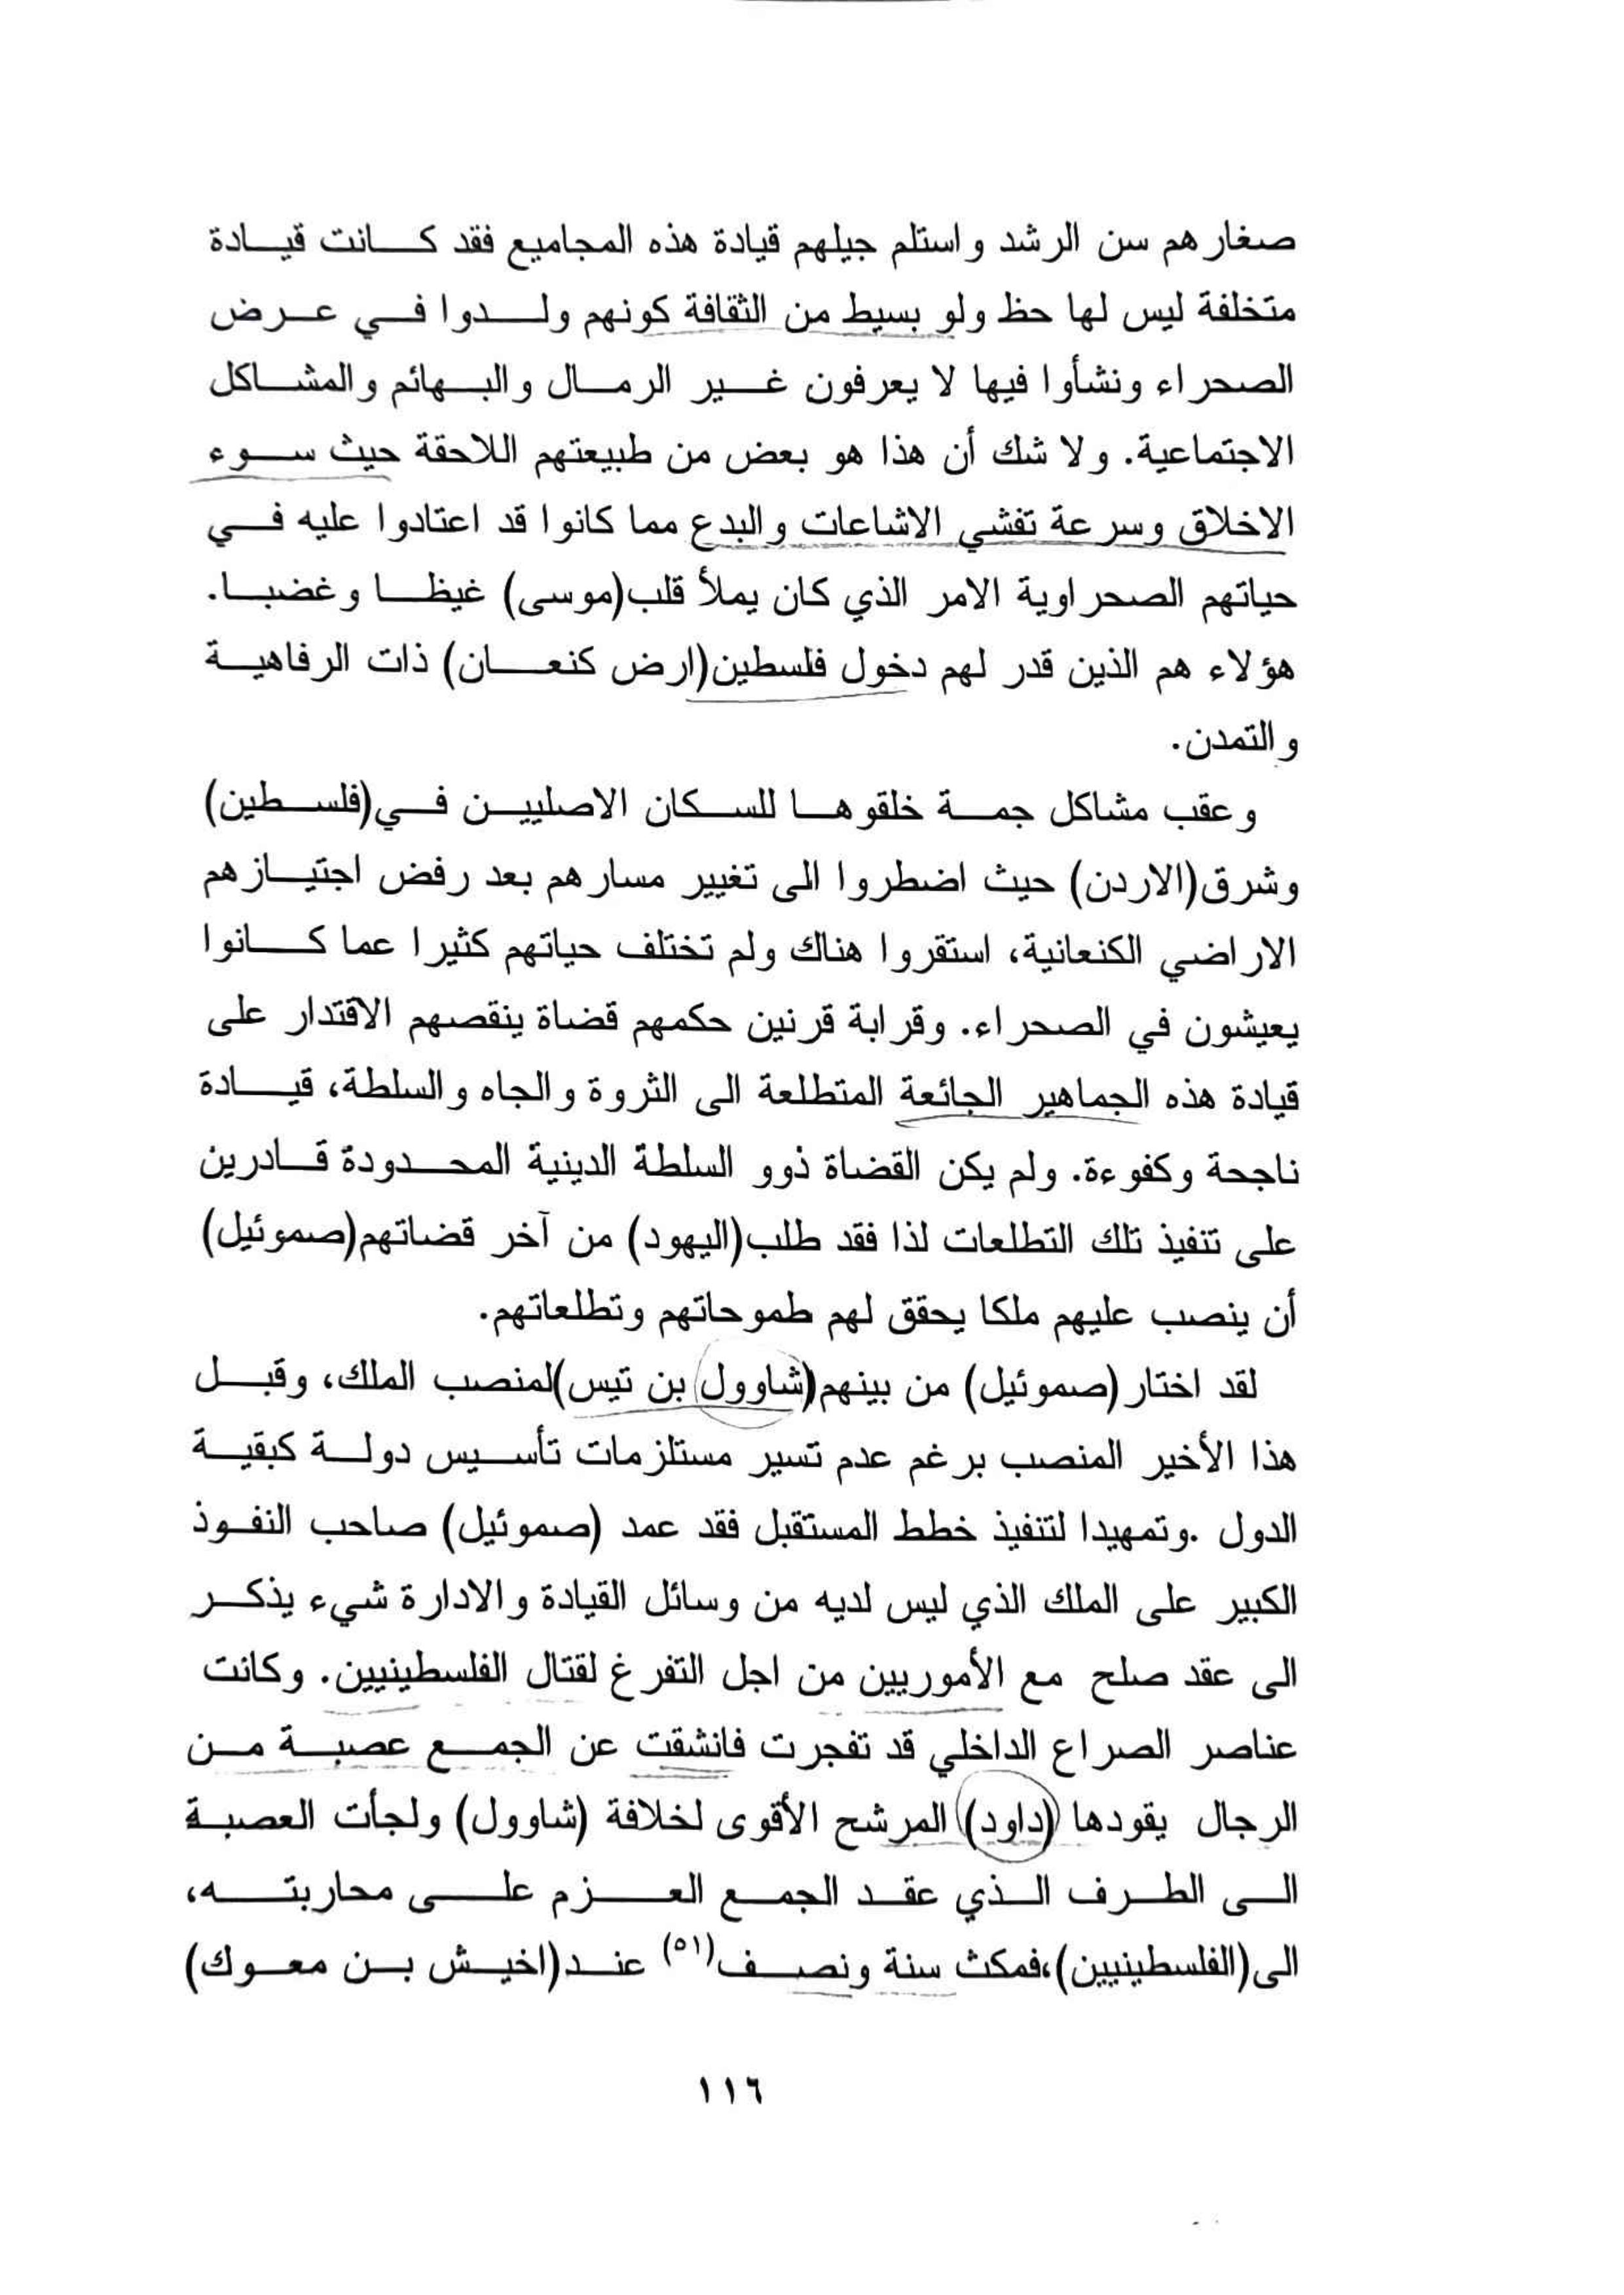 صغارهم سن الرشد واستلم جيلهم قيادة هذه المجاميع فقد كانت قيادة
متخلفة ليس لها حظ ولو بسيط من الثقافة كونهم ولدوا في عرض
الصحراء ونشأوا فيها لا يعرفون غير الرمال والبهائم والمشاكل
الاجتماعية. ولا شك أن هذا هو بعض من طبيعتهم اللاحقة حيث سوء
الاخلاق وسرعة تفشي الاشاعات والبدع مما كانوا قد اعتادوا عليه في
حياتهم الصحراوية الامر الذي كان يملأ قلب(موسى) غيظا وغضبا.
هؤلاء هم الذين قدر لهم دخول فلسطين(ارض كنعان) ذات الرفاهية
والتمدن.
وعقب مشاكل جمة خلقوها للسكان الاصليين في(فلسطين)
وشرق(الاردن) حيث اضطروا الى تغيير مسارهم بعد رفض اجتيازهم
الاراضي الكنعانية، استقروا هناك ولم تختلف حياتهم كثيرا عما كانوا
يعيشون في الصحراء. وقرابة قرنين حكمهم قضاة ينقصهم الاقتدار على
قيادة هذه الجماهير الجائعة المتطلعة الى الثروة والجاه والسلطة، قيادة
ناجحة وكفوءة. ولم يكن القضاة ذوو السلطة الدينية المحدودة قادرين
على تنفيذ تلك التطلعات لذا فقد طلب(اليهود) من آخر قضاتهم(صموئيل)
أن ينصب عليهم ملكا يحقق لهم طموحاتهم وتطلعاتهم.
لقد اختار (صموئيل) من بينهم(شاوول بن تيس)لمنصب الملك، وقبل
هذا الأخير المنصب برغم عدم تسير مستلزمات تأسيس دولة كبقية
الدول .وتمهيدا لتنفيذ خطط المستقبل فقد عمد (صموئيل) صاحب النفوذ
الكبير على الملك الذي ليس لديه من وسائل القيادة والادارة شيء يذكر
الى عقد صلح مع الأموريين من اجل التفرغ لقتال الفلسطينيين. وكانت
عناصر الصراع الداخلي قد تفجرت فانشقت عن الجمع عصبة من
الرجال يقودها (داود) المرشح الأقوى لخلافة (شاوول) ولجأت العصبة
الى الطرف الذي عقد الجمع العزم على محاربته،
الى(الفلسطينيين)،فمكث سنة ونصف(٥١) عند(اخيش بن معوك)
١١٦